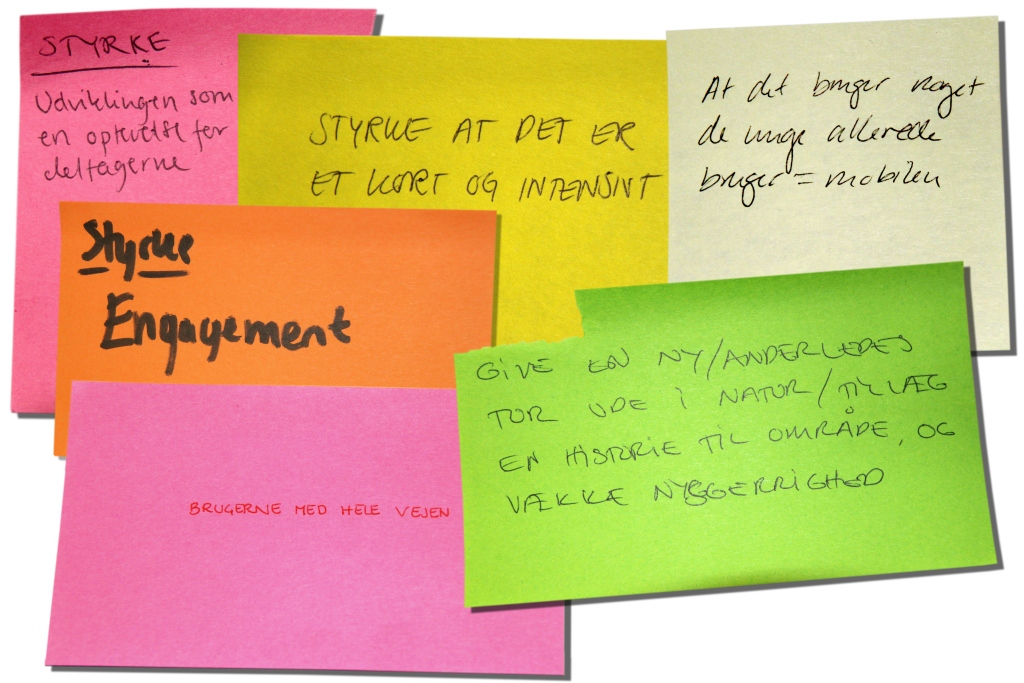 STYRKE
Udviklingen som
en oplevelse for
deltagerne
STYRKE AT DET ER
ET KORT OG INTENSIVT
At det bruger noget
de unge allerede
bruger = mobilen
Styrke
Engagement
GIVE EN NY/ANDERLEDES
TUR UDE I NATUR/TILLÆG
EN HISTORIE TIL OMRÅDE, OG
VÆKKE NYSGERRIGHED
BRUGERNE MED HELE VEJEN